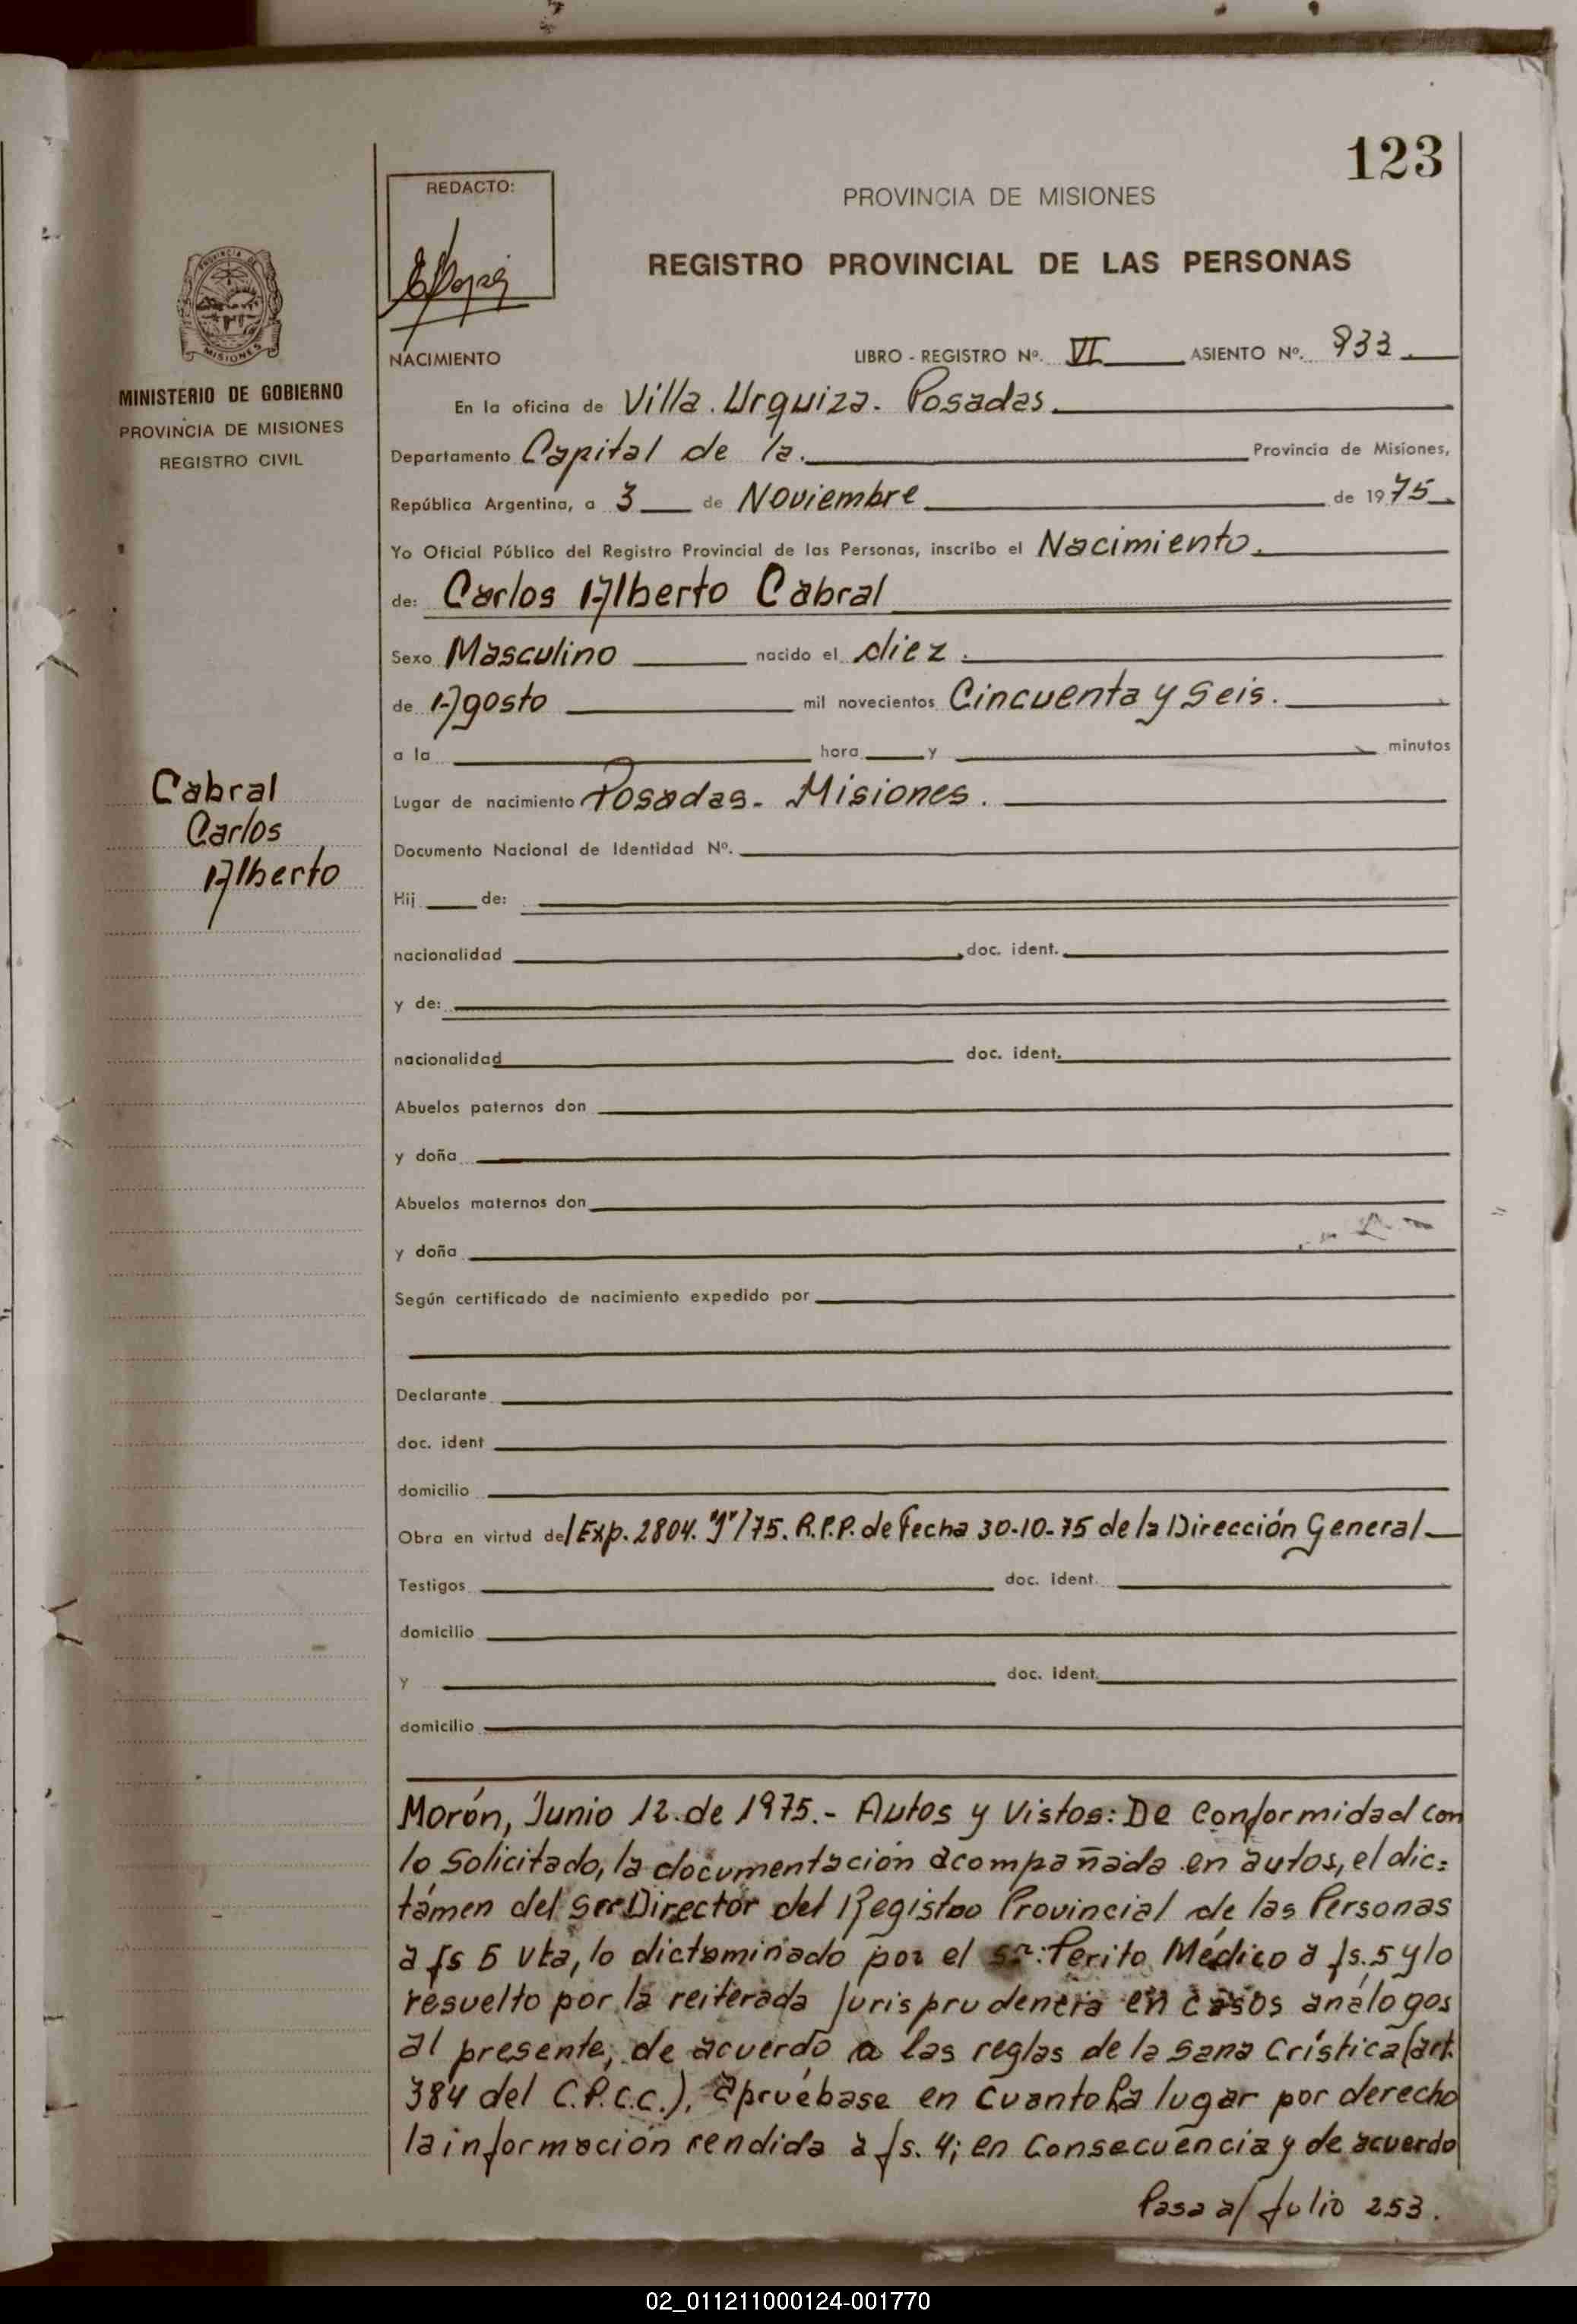 123
REDACTO:
PROVINCIA DE MISIONES
REGISTRO PROVINCIAL DE LAS PERSONAS
PROVINCIA DE
MISIONES
MINISTERIO DE GOBIERNO
PROVINCIA DE MISIONES
REGISTRO CIVIL
NACIMIENTO LIBRO - REGISTRO Nº. VI ASIENTO Nº. 933
En la oficina de Villa. Urquiza. Posadas.
Departamento Capital de la. Provincia de Misiones,
República Argentina, a 3 de Noviembre de 1975
Yo Oficial Público del Registro Provincial de las Personas, inscribo el Nacimiento.
de: Carlos Alberto Cabral
Sexo Masculino nacido el diez.
de Agosto mil novecientos Cincuenta y Seis.
a la hora y minutos
Cabral
Carlos
Alberto
Lugar de nacimiento Posadas. Misiones.
Documento Nacional de Identidad Nº.
Hij de:
nacionalidad doc. ident.
y de:
nacionalidad doc. ident.
Abuelos paternos don
y doña
Abuelos maternos don
y doña
Según certificado de nacimiento expedido por
Declarante
doc. ident
domicilio
Obra en virtud del Exp. 2804. /75. R.P.P. de fecha 30-10-75 de la Dirección General
Testigos doc. ident.
domicilio
y doc. ident.
domicilio
Morón, Junio 12. de 1975.- Autos y Vistos: De Conformidad con
lo Solicitado, la documentación acompañada en autos, el dic=
támen del Director del Registro Provincial de las Personas
a fs 5 vta, lo dictaminado por el Sr: Perito Médico a fs. 5 y lo
resuelto por la reiterada Jurisprudencia en casos análogos
al presente, de acuerdo a las reglas de la sana Crística (art.
384 del C.P.C.C.), apruébase en cuanto ha lugar por derecho
la información rendida a fs. 4; en Consecuencia y de acuerdo
Pasa al folio 253.
02_011211000124-001770